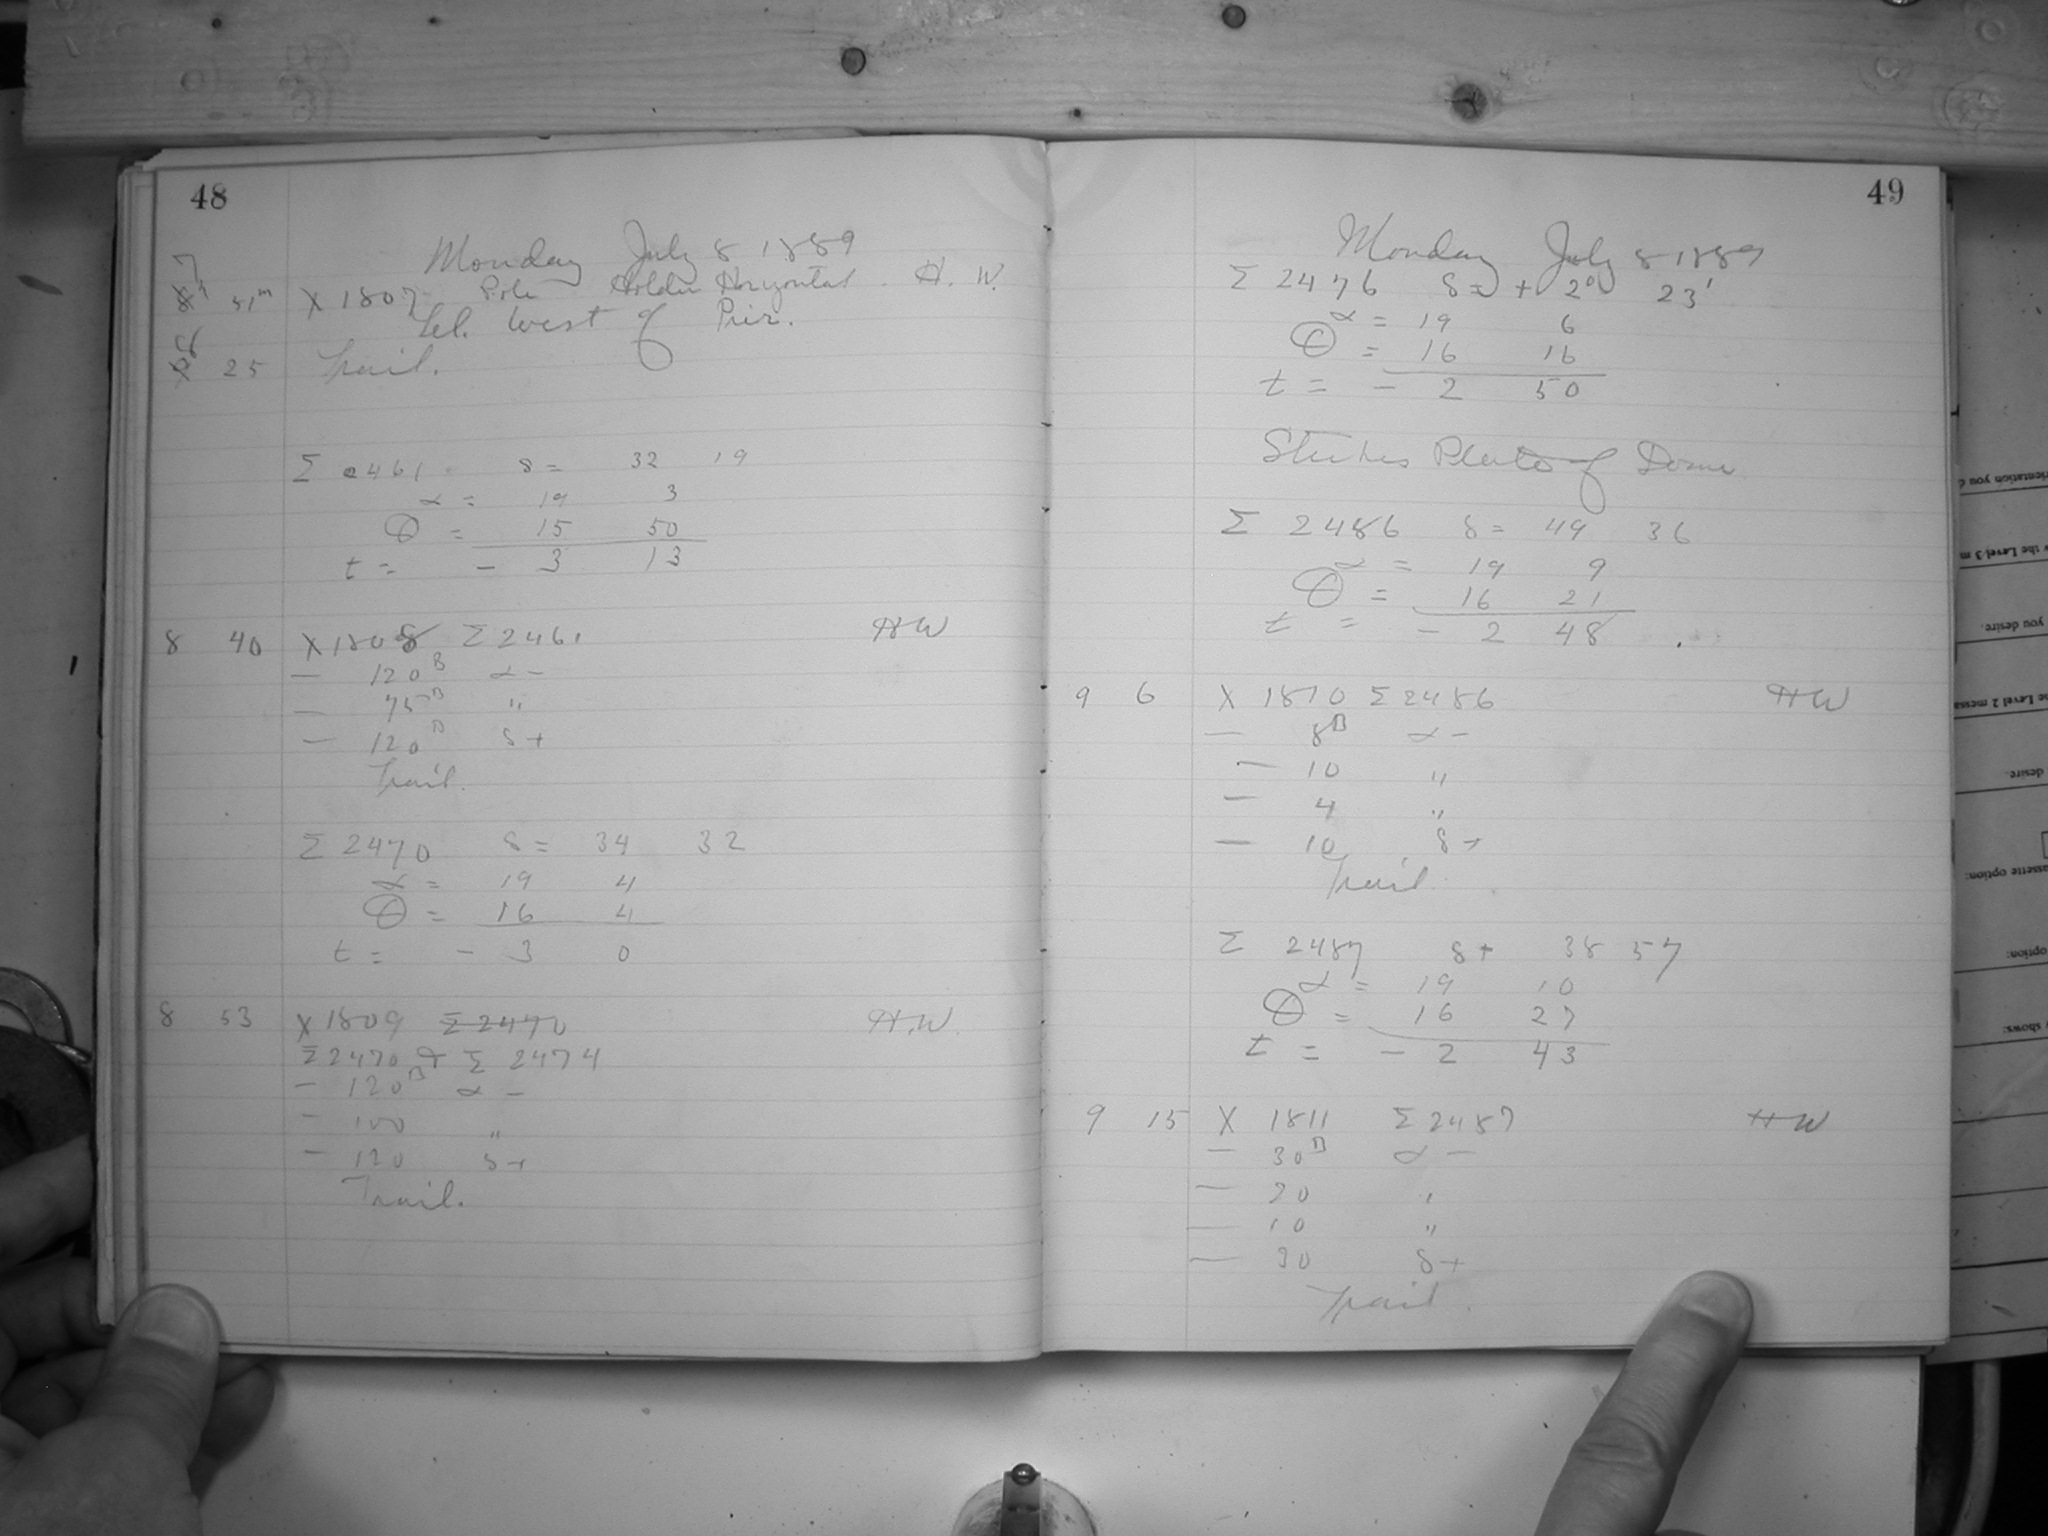 48
Monday July 8 1889
7
8h 51m X 1807 Pole Holder Horizontal. H. W.
Tel. West of Pier.
8 25 Trail.
Σ 2461 δ = 32 19
α = 19 3
Θ = 15 50
t = - 3 13
8 40 X 1808 Σ 2461 HW
— 120B α -
— 75B "
— 120B δ +
Trail.
Σ 2470 δ = 34 32
α = 19 4
Θ = 16 4
t = - 3 0
8 53 X 1809 Σ 2470 H.W.
Σ 2470 & Σ 2474
— 120B α -
- 100 "
- 120 δ +
Trail.
49
Monday July 8 1889
Σ 2476 δ = + 2° 23'
α = 19 6
Θ = 16 16
t = - 2 50
Strikes Plate of Dome
Σ 2486 δ = 49 36
α = 19 9
Θ = 16 21
t = - 2 48
9 6 X 1810 Σ 2486 HW
— 8B α -
— 10 "
— 4 "
— 10 δ +
Trail.
Σ 2487 δ + 38 57
α = 19 10
Θ = 16 27
t = - 2 43
9 15 X 1811 Σ 2487 HW
— 30B α —
— 20 "
— 10 "
— 30 δ +
Trail.
rientation you d
the Level 3 m
you desire.
he Level 2 messa
desire.
assette option:
option:
shows: